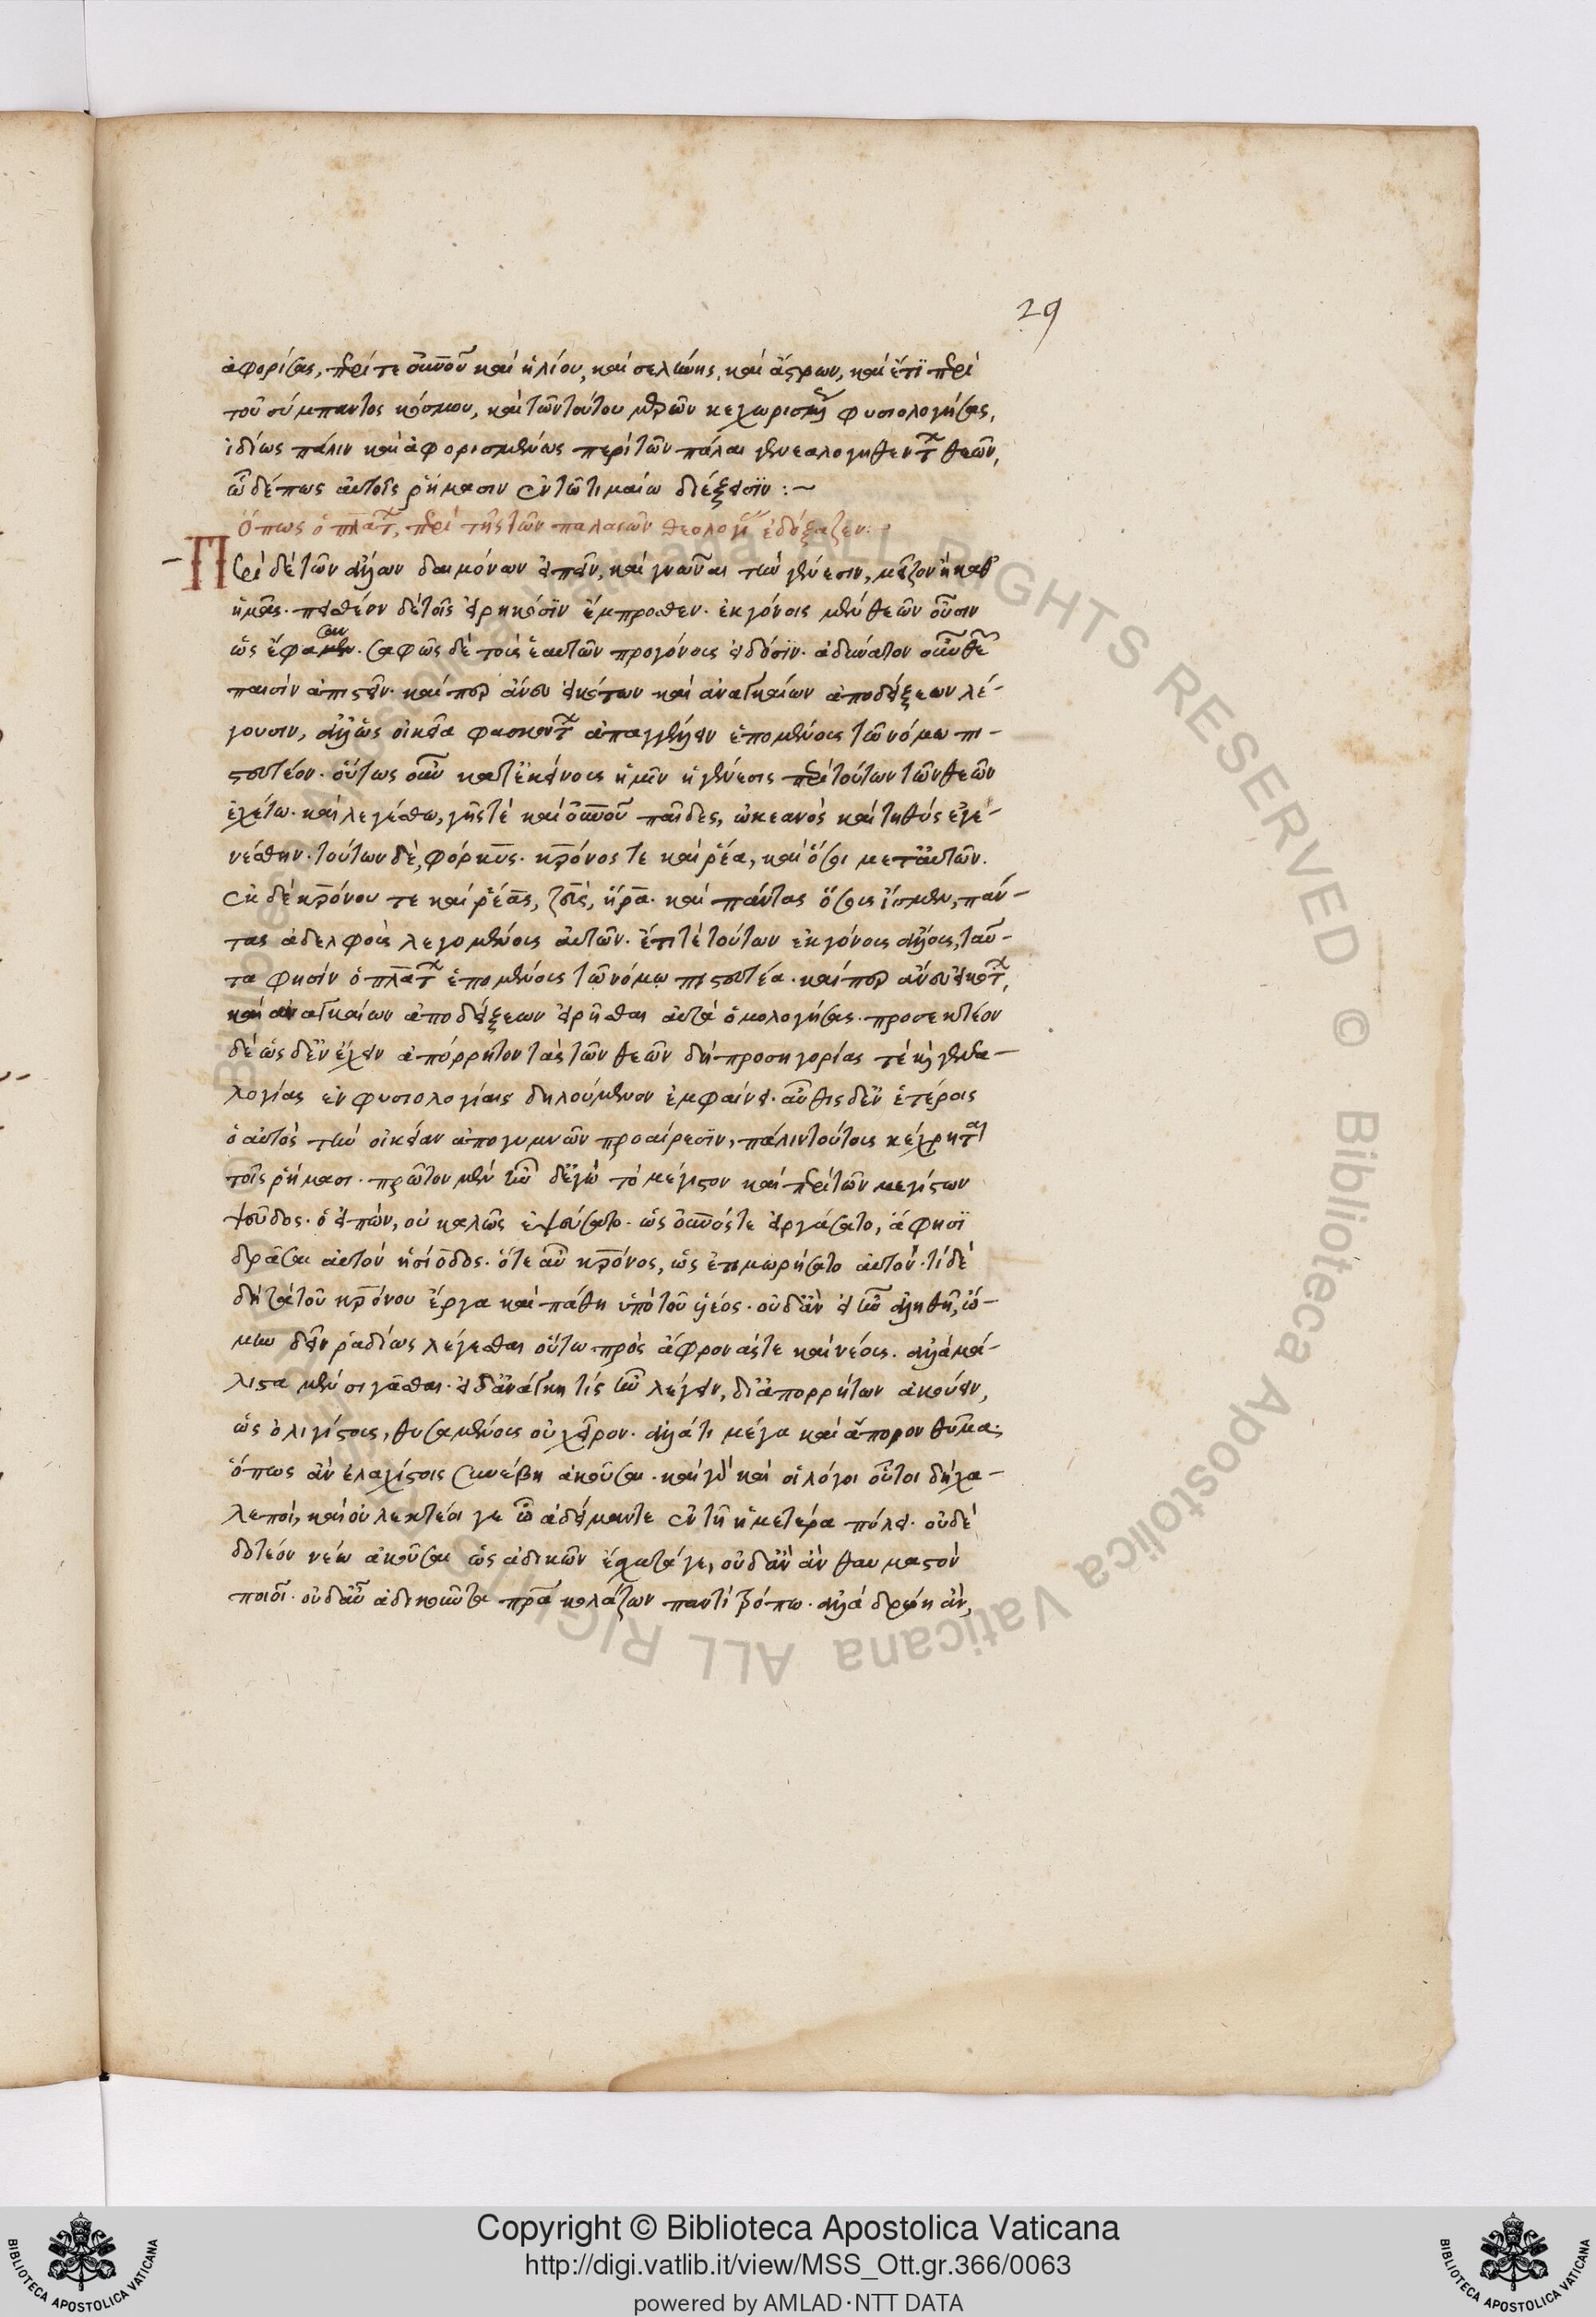 29
ἀφορίσας, περί τε οὐνοῦ καὶ ἡλίου, καὶ σελήνης, καὶ ἄστρων, καὶ ἔτι περὶ
τοῦ σύμπαντος κόσμου, καὶ τῶν τούτου μερῶν κεχωρισμένως φυσιολογήσας,
ἰδίως πάλιν καὶ ἀφορισμένως περὶ τῶν πάλαι γενεαλογηθέντων θεῶν,
ὧδέ πως αὐτοῖς ῥήμασιν ἐν τῶ τιμαίω διέξεισϊν :~
Ὅπως ὁ πλάτων, περὶ τῆς τῶν παλαιῶν θεολογίας ἐδόξαζεν:
Περὶ δὲ τῶν ἄλλων δαιμόνων εἰπεῖν, καὶ γνῶναι τὴν γένεσιν, μεῖζον ἢ καθ'
ἡμᾶς. πειστέον δὲ τοῖς εἰρηκόσϊν ἔμπροσθεν. ἐκγόνοις μὲν θεῶν οὖσιν
ὡς ἔφασαν. σαφῶς δὲ τοὺς ἑαυτῶν προγόνους εἰδόσϊν. ἀδύνατον οὖν θεῶν
παισὶν ἀπιστεῖν. καί περ ἄνευ εἰκότων καὶ ἀναγκαίων ἀποδείξεων λέ-
γουσιν, ἀλλ' ὡς οἰκεῖα φασκόντων ἀπαγγέλλειν ἑπομένους τῶ νόμω πι-
στευτέον. οὕτως οὖν κατ' ἐκείνους ἡμῖν ἡ γένεσις περὶ τούτων τῶν θεῶν
ἐχέτω. καὶ λεγέσθω, γῆς τὲ καὶ οὐνοῦ παῖδες, ὠκεανὸς καὶ τηθὺς ἐγε-
νέσθην. τούτων δὲ, φόρκυς. κρόνος τε καὶ ῥέα, καὶ ὅσοι μετ' αὐτῶν.
ἐκ δὲ κρόνου τε καὶ ῥέας, ζεὺς, ἥρα. καὶ πάντας ὅσους ἴσμεν, πάν-
τας ἀδελφοὺς λεγομένους αὐτῶν. ἔτι τὲ τούτων ἐκγόνους ἄλλους, ταῦ-
τα φησὶν ὁ πλάτων ἑπομένους τῶ νόμω πιστευτέα. καί περ ἄνευ εἰκότων,
καὶ ἀναγκαίων ἀποδείξεων εἰρῆσθαι αὐτὰ ὁμολογήσας. προσεκτέον
δὲ ὡς δ' ἓν ἔχειν ἀπόρρητον τὰς τῶν θεῶν δὴ προσηγορίας τὲ καὶ γενεα-
λογίας ἐν φυσιολογίαις δηλούμενον ἐμφαίνει. αὖθις δ' ἐν ἑτέροις
ὁ αὐτὸς τὴν οἰκείαν ἀπογυμνῶν προαίρεσϊν, πάλιν τούτοις κέχρηται
τοῖς ῥήμασι. πρῶτον μὲν ἦν δ' ἐγὼ τὸ μέγιστον καὶ περὶ τῶν μεγίστων
ψεῦδος. ὁ εἰπὼν, οὐ καλῶς ἐψεύσατο. ὡς οὐνός τε εἰργάσατο, ἅ φησϊ
δρᾶσαι αὐτὸν ἡσίοδος. ὅτε αὖ κρόνος, ὡς ἐτιμωρήσατο αὐτόν. τί δὲ
δὴ τὰ τοῦ κρόνου ἔργα καὶ πάθη ὑπὸ τοῦ ὑέος. οὐδ' ἂν εἰ ἦν ἀληθῆ, ὤ-
μην δεῖν ῥαδίως λέγεσθαι οὕτω πρὸς ἄφρονάς τε καὶ νέους. ἀλλὰ μά-
λιστα μὲν σιγᾶσθαι. εἰ δ' ἀνάγκη τίς ἦν λέγειν, δι' ἀπορρήτων ἀκούειν,
ὡς ὀλιγίστους, θυσαμένους οὐ χοῖρον. ἀλλά τι μέγα καὶ ἄπορον θῦμα.
ὅπως ἂν ἐλαχίστοις συνέβη ἀκοῦσαι. καὶ γὰρ καὶ οἱ λόγοι οὗτοι δὴ χα-
λεποὶ, καὶ οὐ λεκτέοι γε ὦ ἀδείμαντε ἐν τῆ ἡμετέρα πόλει. οὐδὲ
δοτέον νέω ἀκοῦσαι ὡς ἀδικῶν ἔσχατά γε, οὐδ' ἂν ἂν θαυμαστὸν
ποιοῖ. οὐδ' αὖ ἀδικοῦντα πρα κολάζων παντὶ τρόπω. ἀλλὰ δρώη ἂν,
Copyright © Biblioteca Apostolica Vaticana
http://digi.vatlib.it/view/MSS_Ott.gr.366/0063
powered by AMLAD·NTT DATA
BIBLIOTECA APOSTOLICA VATICANA
BIBLIOTECA APOSTOLICA VATICANA
Biblioteca Apostolica Vaticana ALL RIGHTS RESERVED © Biblioteca Apostolica Vaticana ALL RIGHTS RESERVED ©